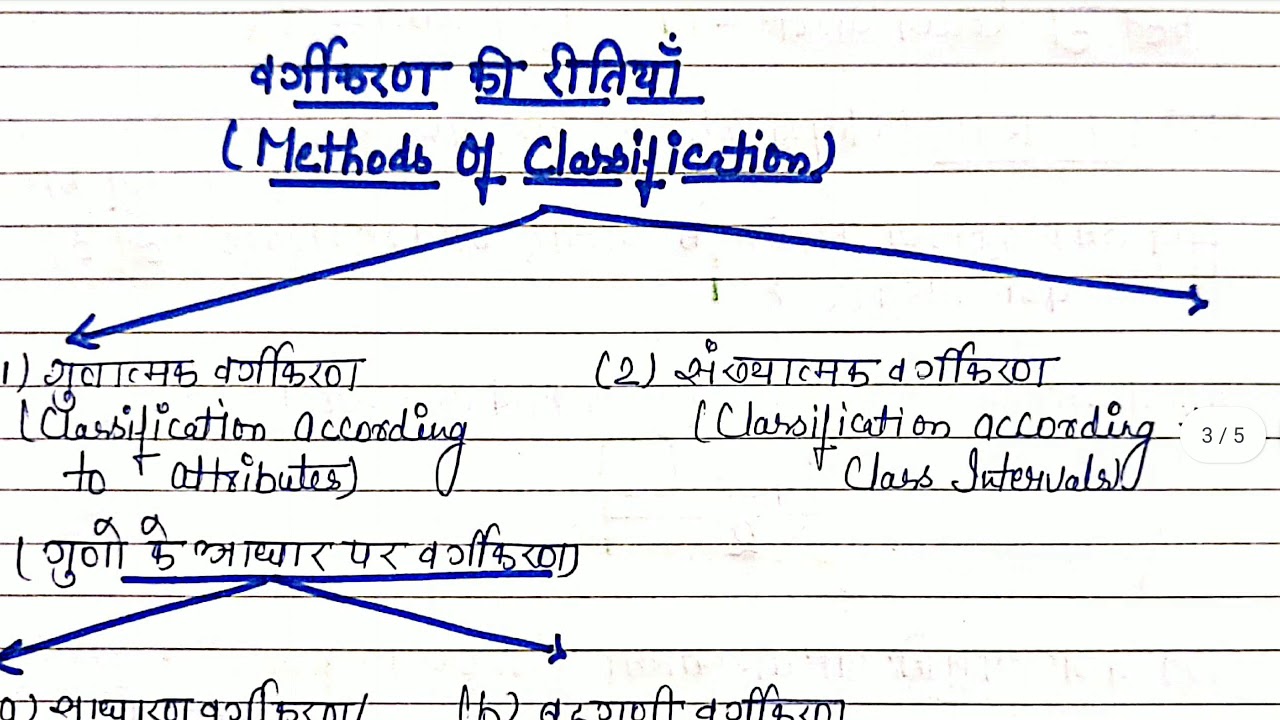 वर्गीकरण की रीतियाँ
(Methods Of Classification)
1) गुणात्मक वर्गीकरण
(Classification according
to attributes)
(2) संख्यात्मक वर्गीकरण
(Classification according
Class Intervals)
3 / 5
(गुणो के आधार पर वर्गीकरण)
a) साधारण वर्गीकरण/
(b) बहुगुणी वर्गीकरण